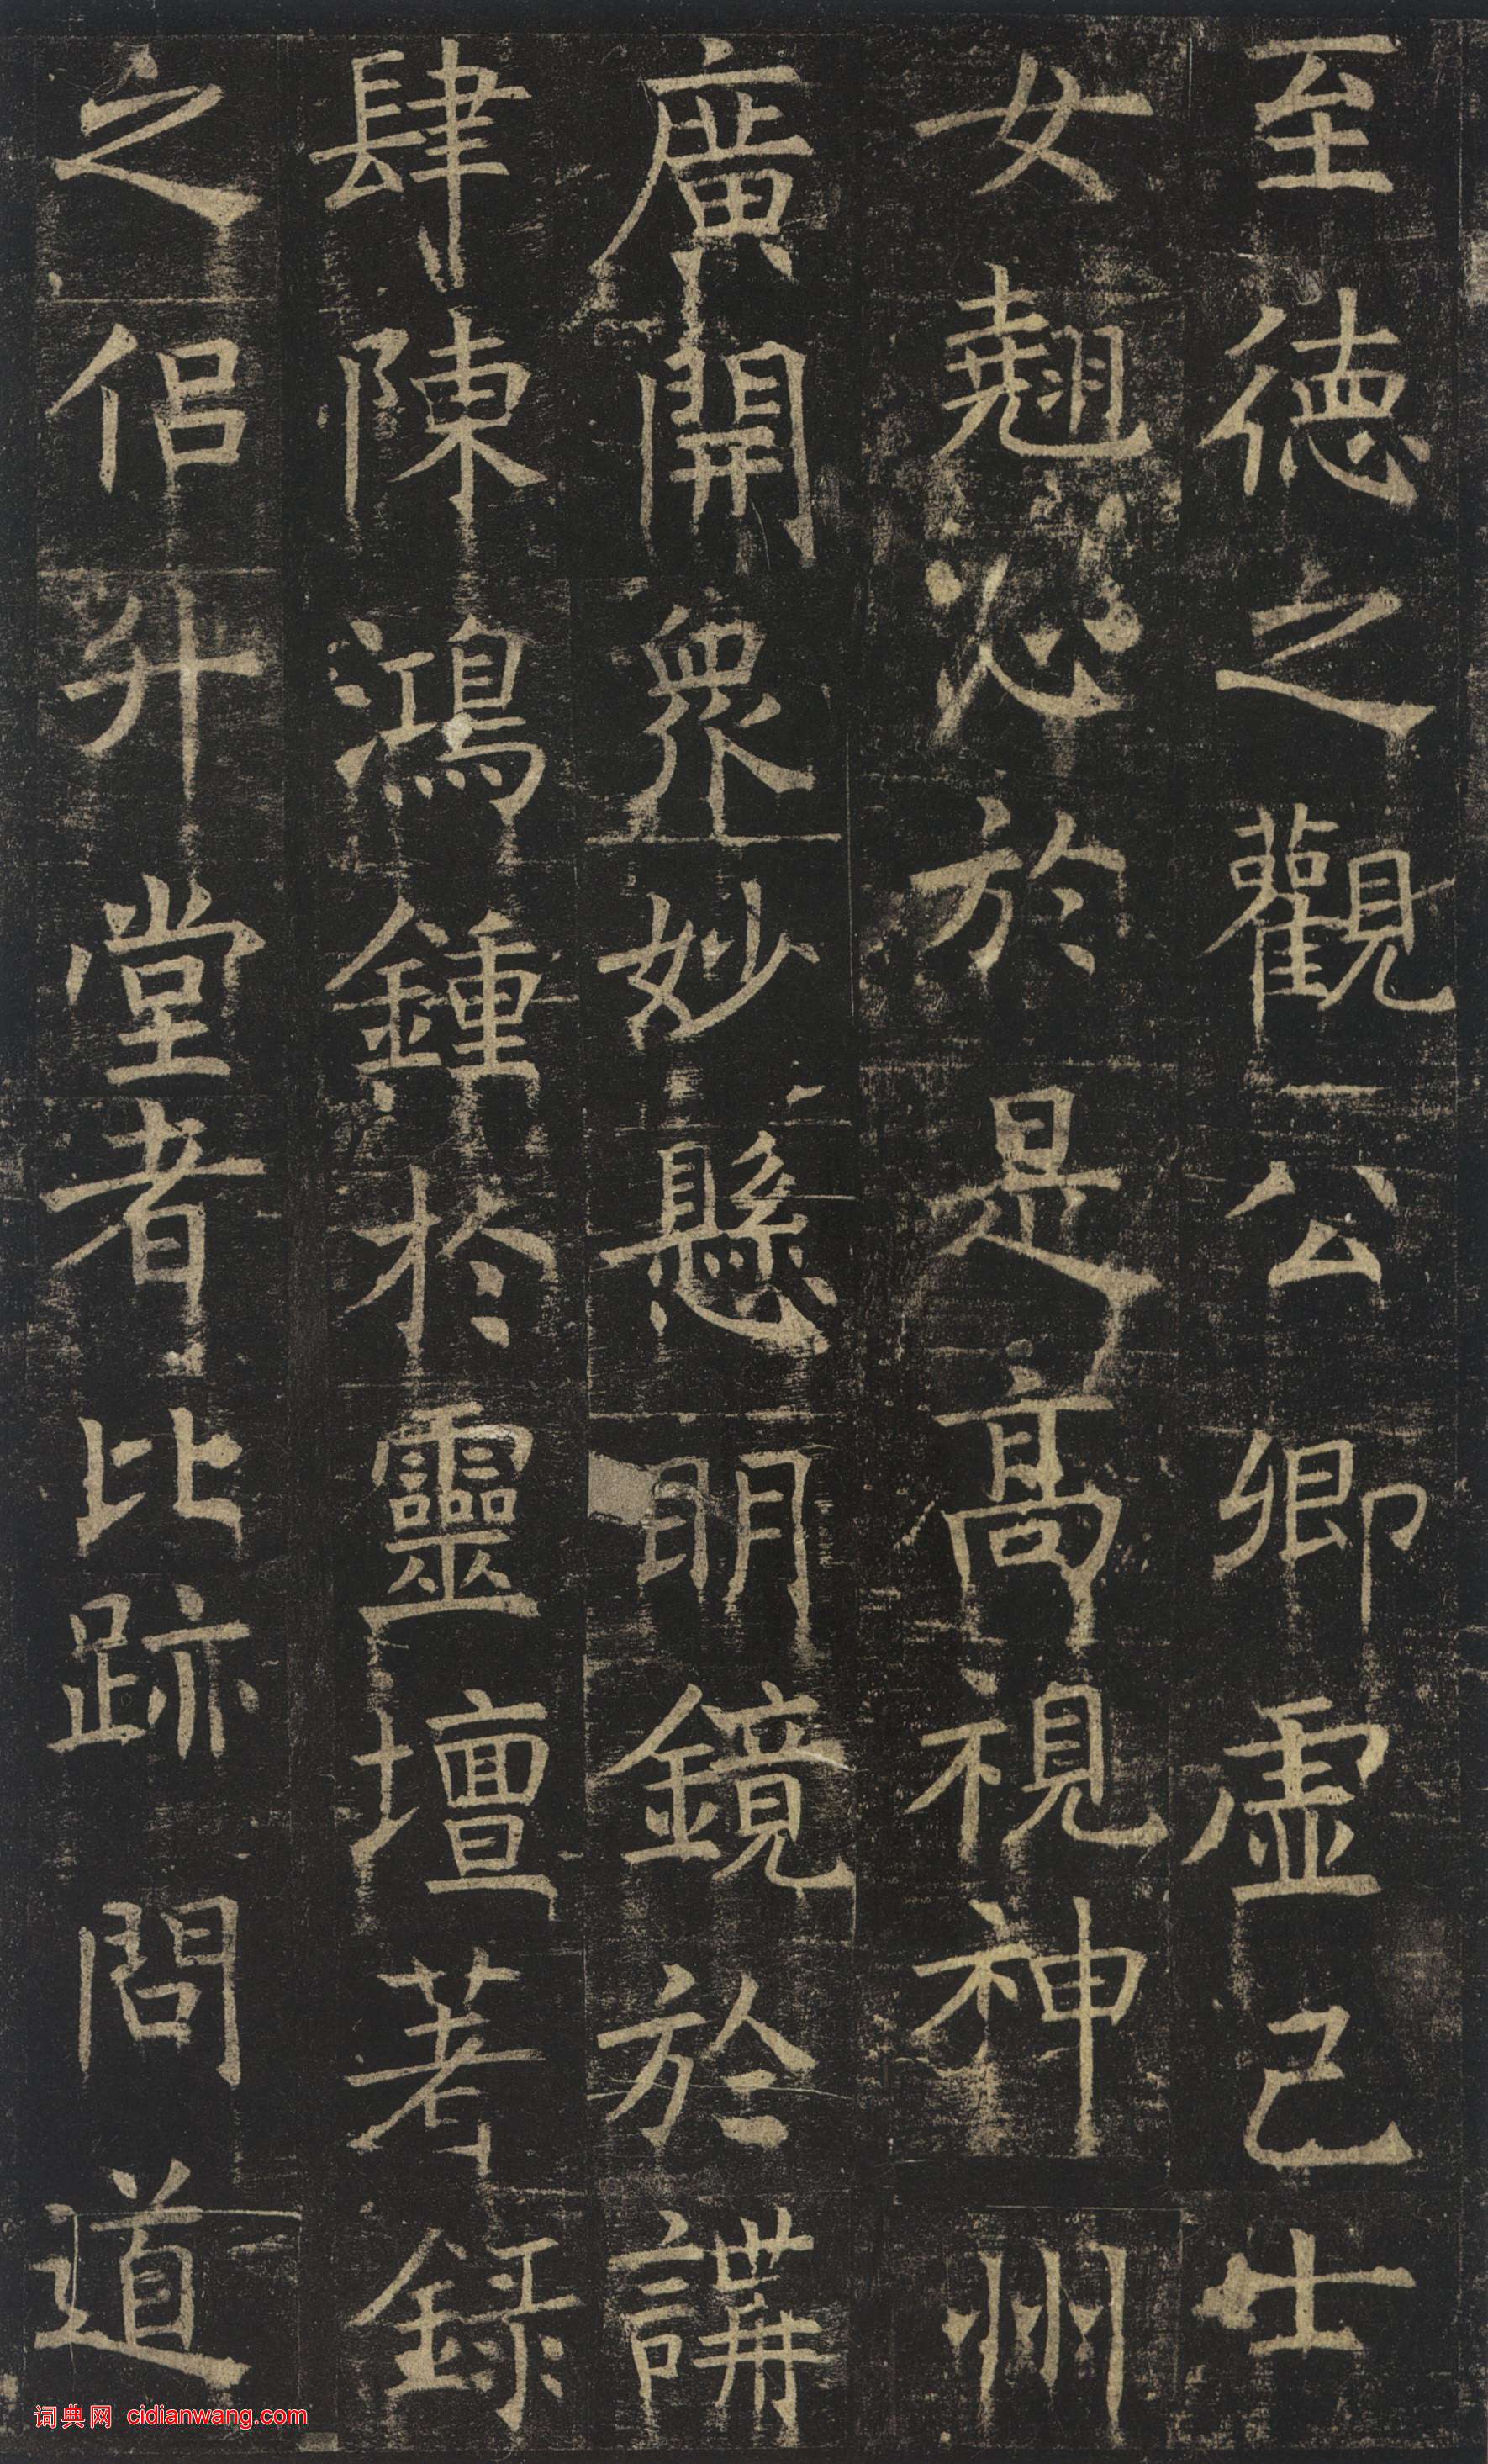 至德之觀公卿虛己士
女翹心於是高視神州
廣開衆妙懸明鏡於講
肆陳鴻鍾於靈壇著錄
之侶升堂者比跡問道
词典网 cidianwang.com